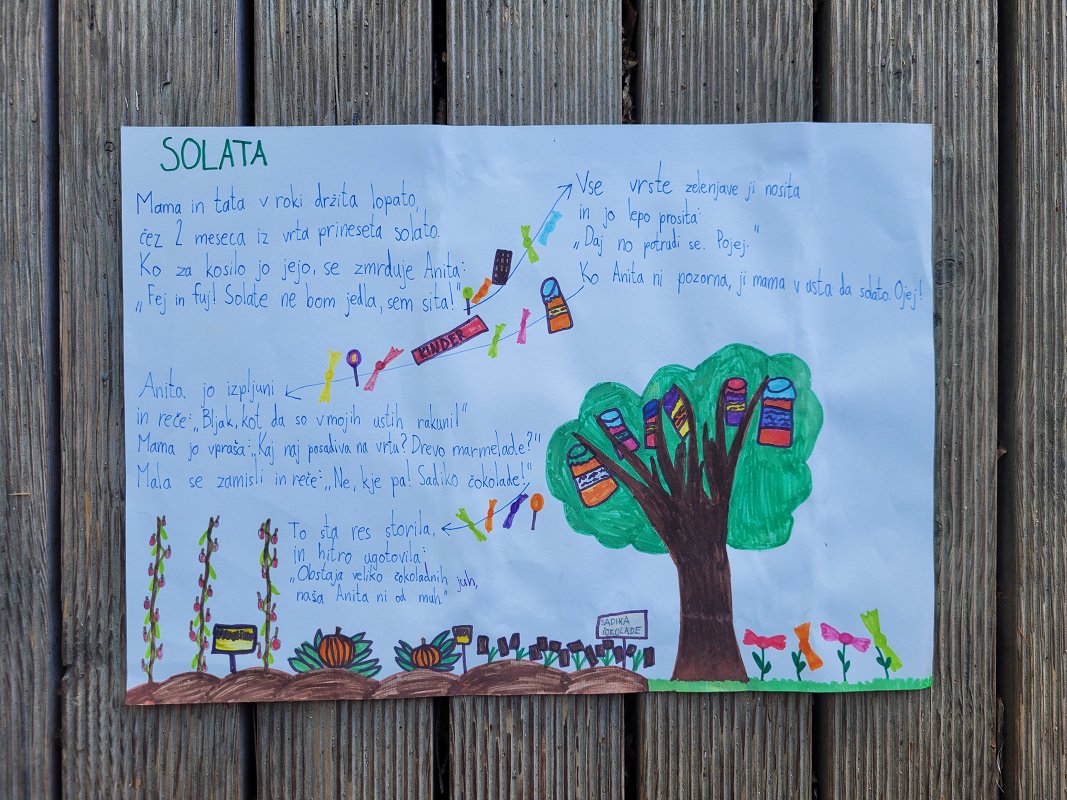 SOLATA
Mama in tata v roki držita lopato,
čez 2 meseca iz vrta prineseta solato.
Ko za kosilo jo jejo, se zmrduje Anita:
„Fej in fuj! Solate ne bom jedla, sem sita!"
Vse vrste zelenjave ji nosita
in jo lepo prosita:
„Daj no potrudi se. Pojej."
Ko Anita ni pozorna, ji mama v usta da solato. Ojej!
KINDER
Anita jo izpljuni
in reče: „Bljak, kot da so v mojih ustih rakuni!"
Mama jo vpraša: „Kaj naj posadiva na vrtu? Drevo marmelade?"
Mala se zamisli in reče: „Ne, kje pa! Sadiko čokolade!"
To sta res storila,
in hitro ugotovila:
„Obstaja veliko čokoladnih juh,
naša Anita ni od muh."
SADIKA
ČOKOLADE